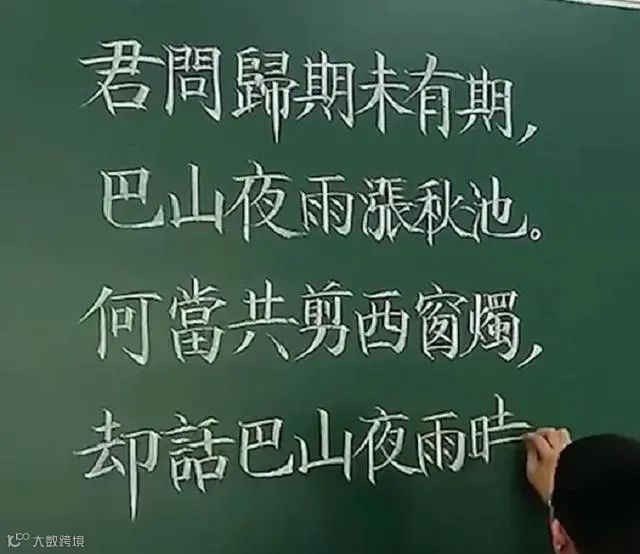 君問歸期未有期，
巴山夜雨漲秋池。
何當共剪西窗燭，
却話巴山夜雨
大数跨境